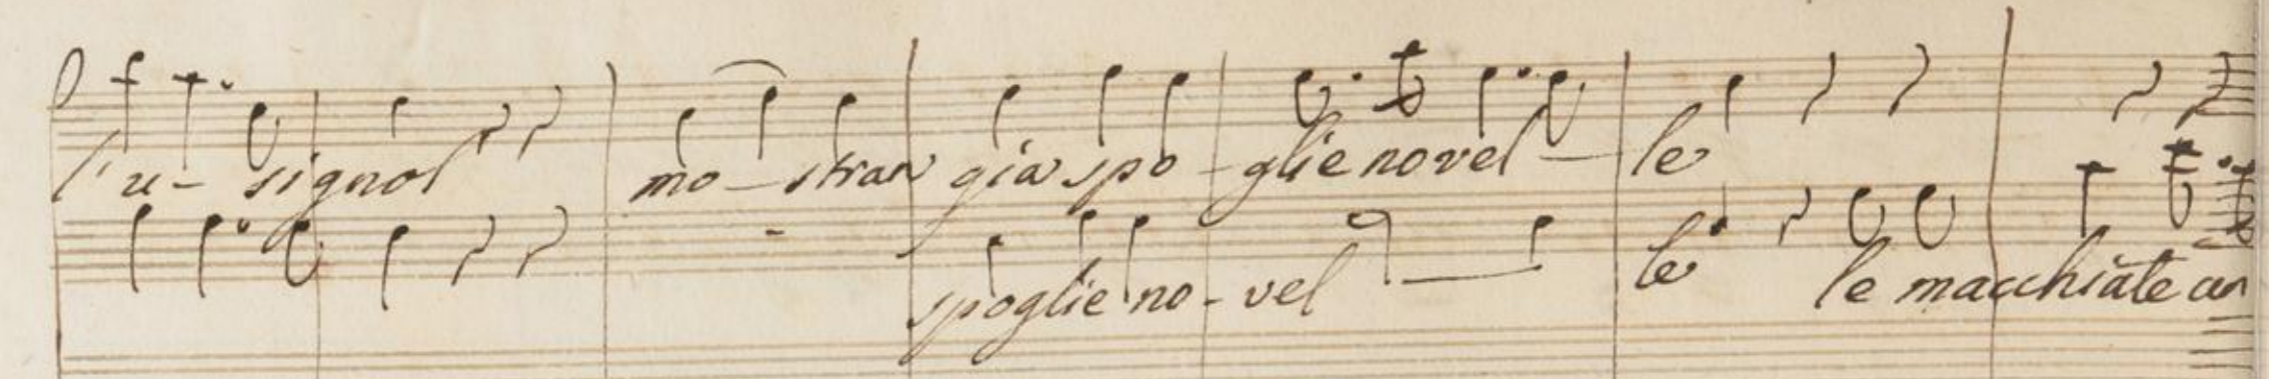 l'u- signol mo-stran già spo-glie novel-le
spoglie no-vel le le macchiate an